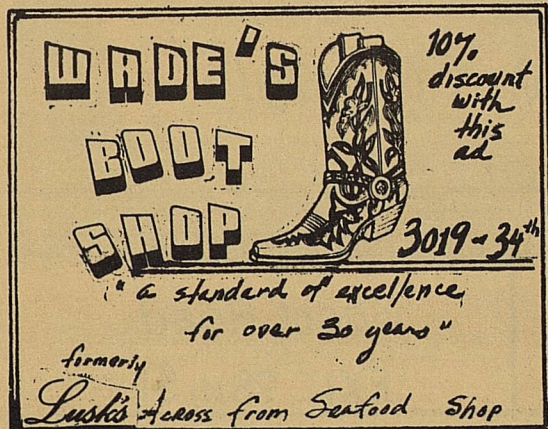 WADE'S
BOOT
SHOP
10%
discount
with
this
ad
3019-34th
"a standard of excellence
for over 30 years"
formerly
Lusk's Across from Seafood Shop